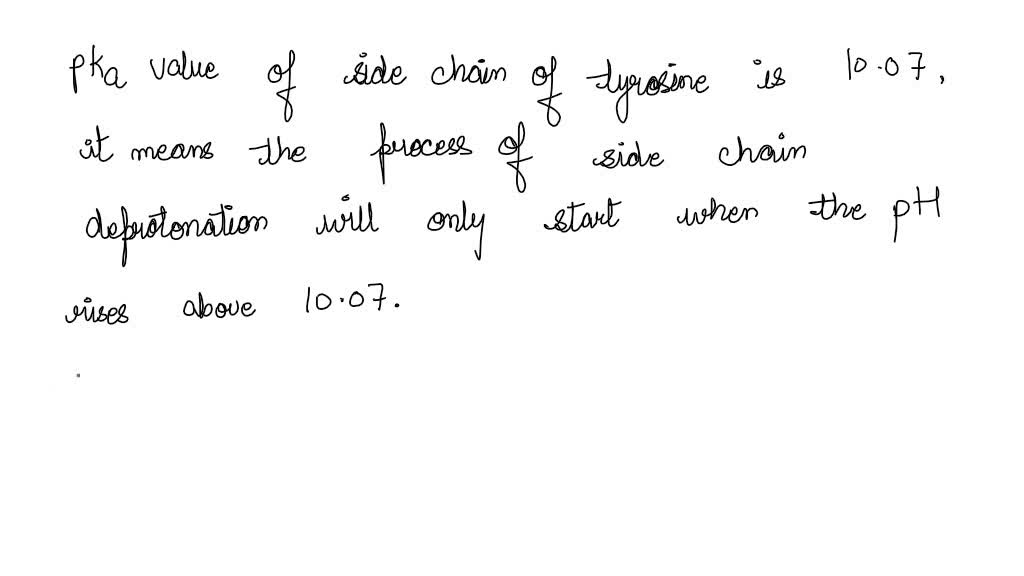 pka value of side chain of tyrosine is 10.07,
it means the process of side chain
deprotonation will only start when the pH
rises above 10.07.